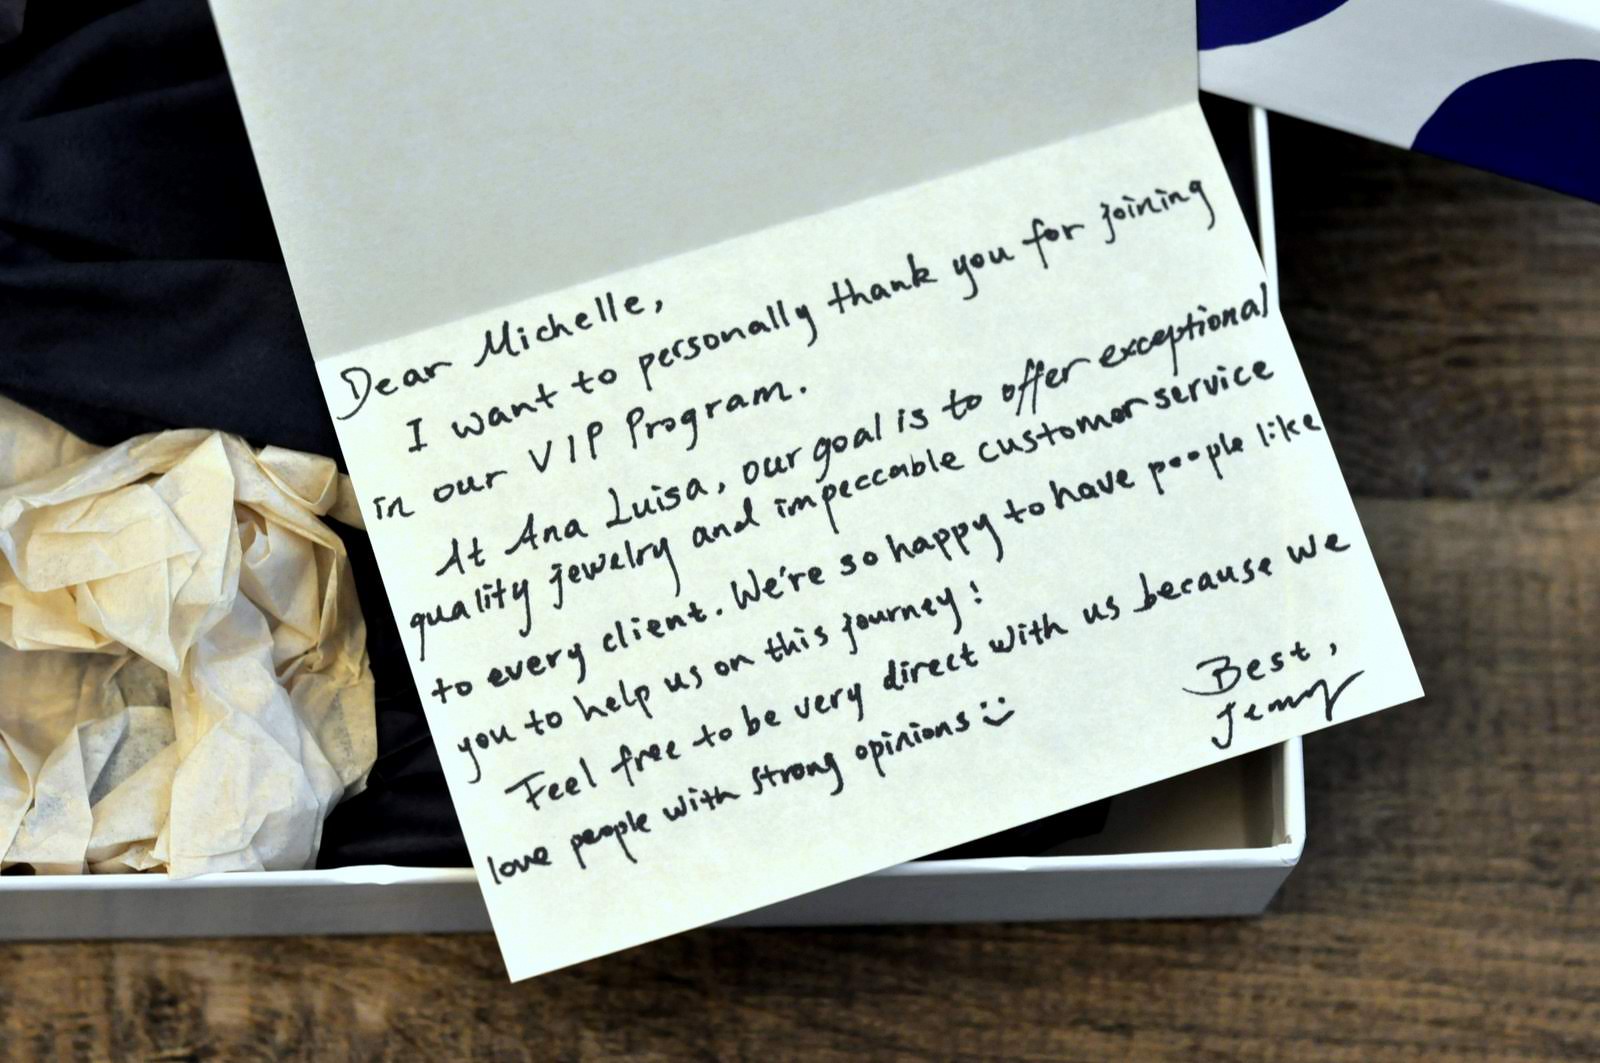 Dear Michelle,
I want to personally thank you for joining
in our VIP Program.
At Ana Luisa, our goal is to offer exceptional
quality jewelry and impeccable customer service
to every client. We're so happy to have people like
you to help us on this journey!
Feel free to be very direct with us because we
love people with strong opinions :)
Best,
Jenny